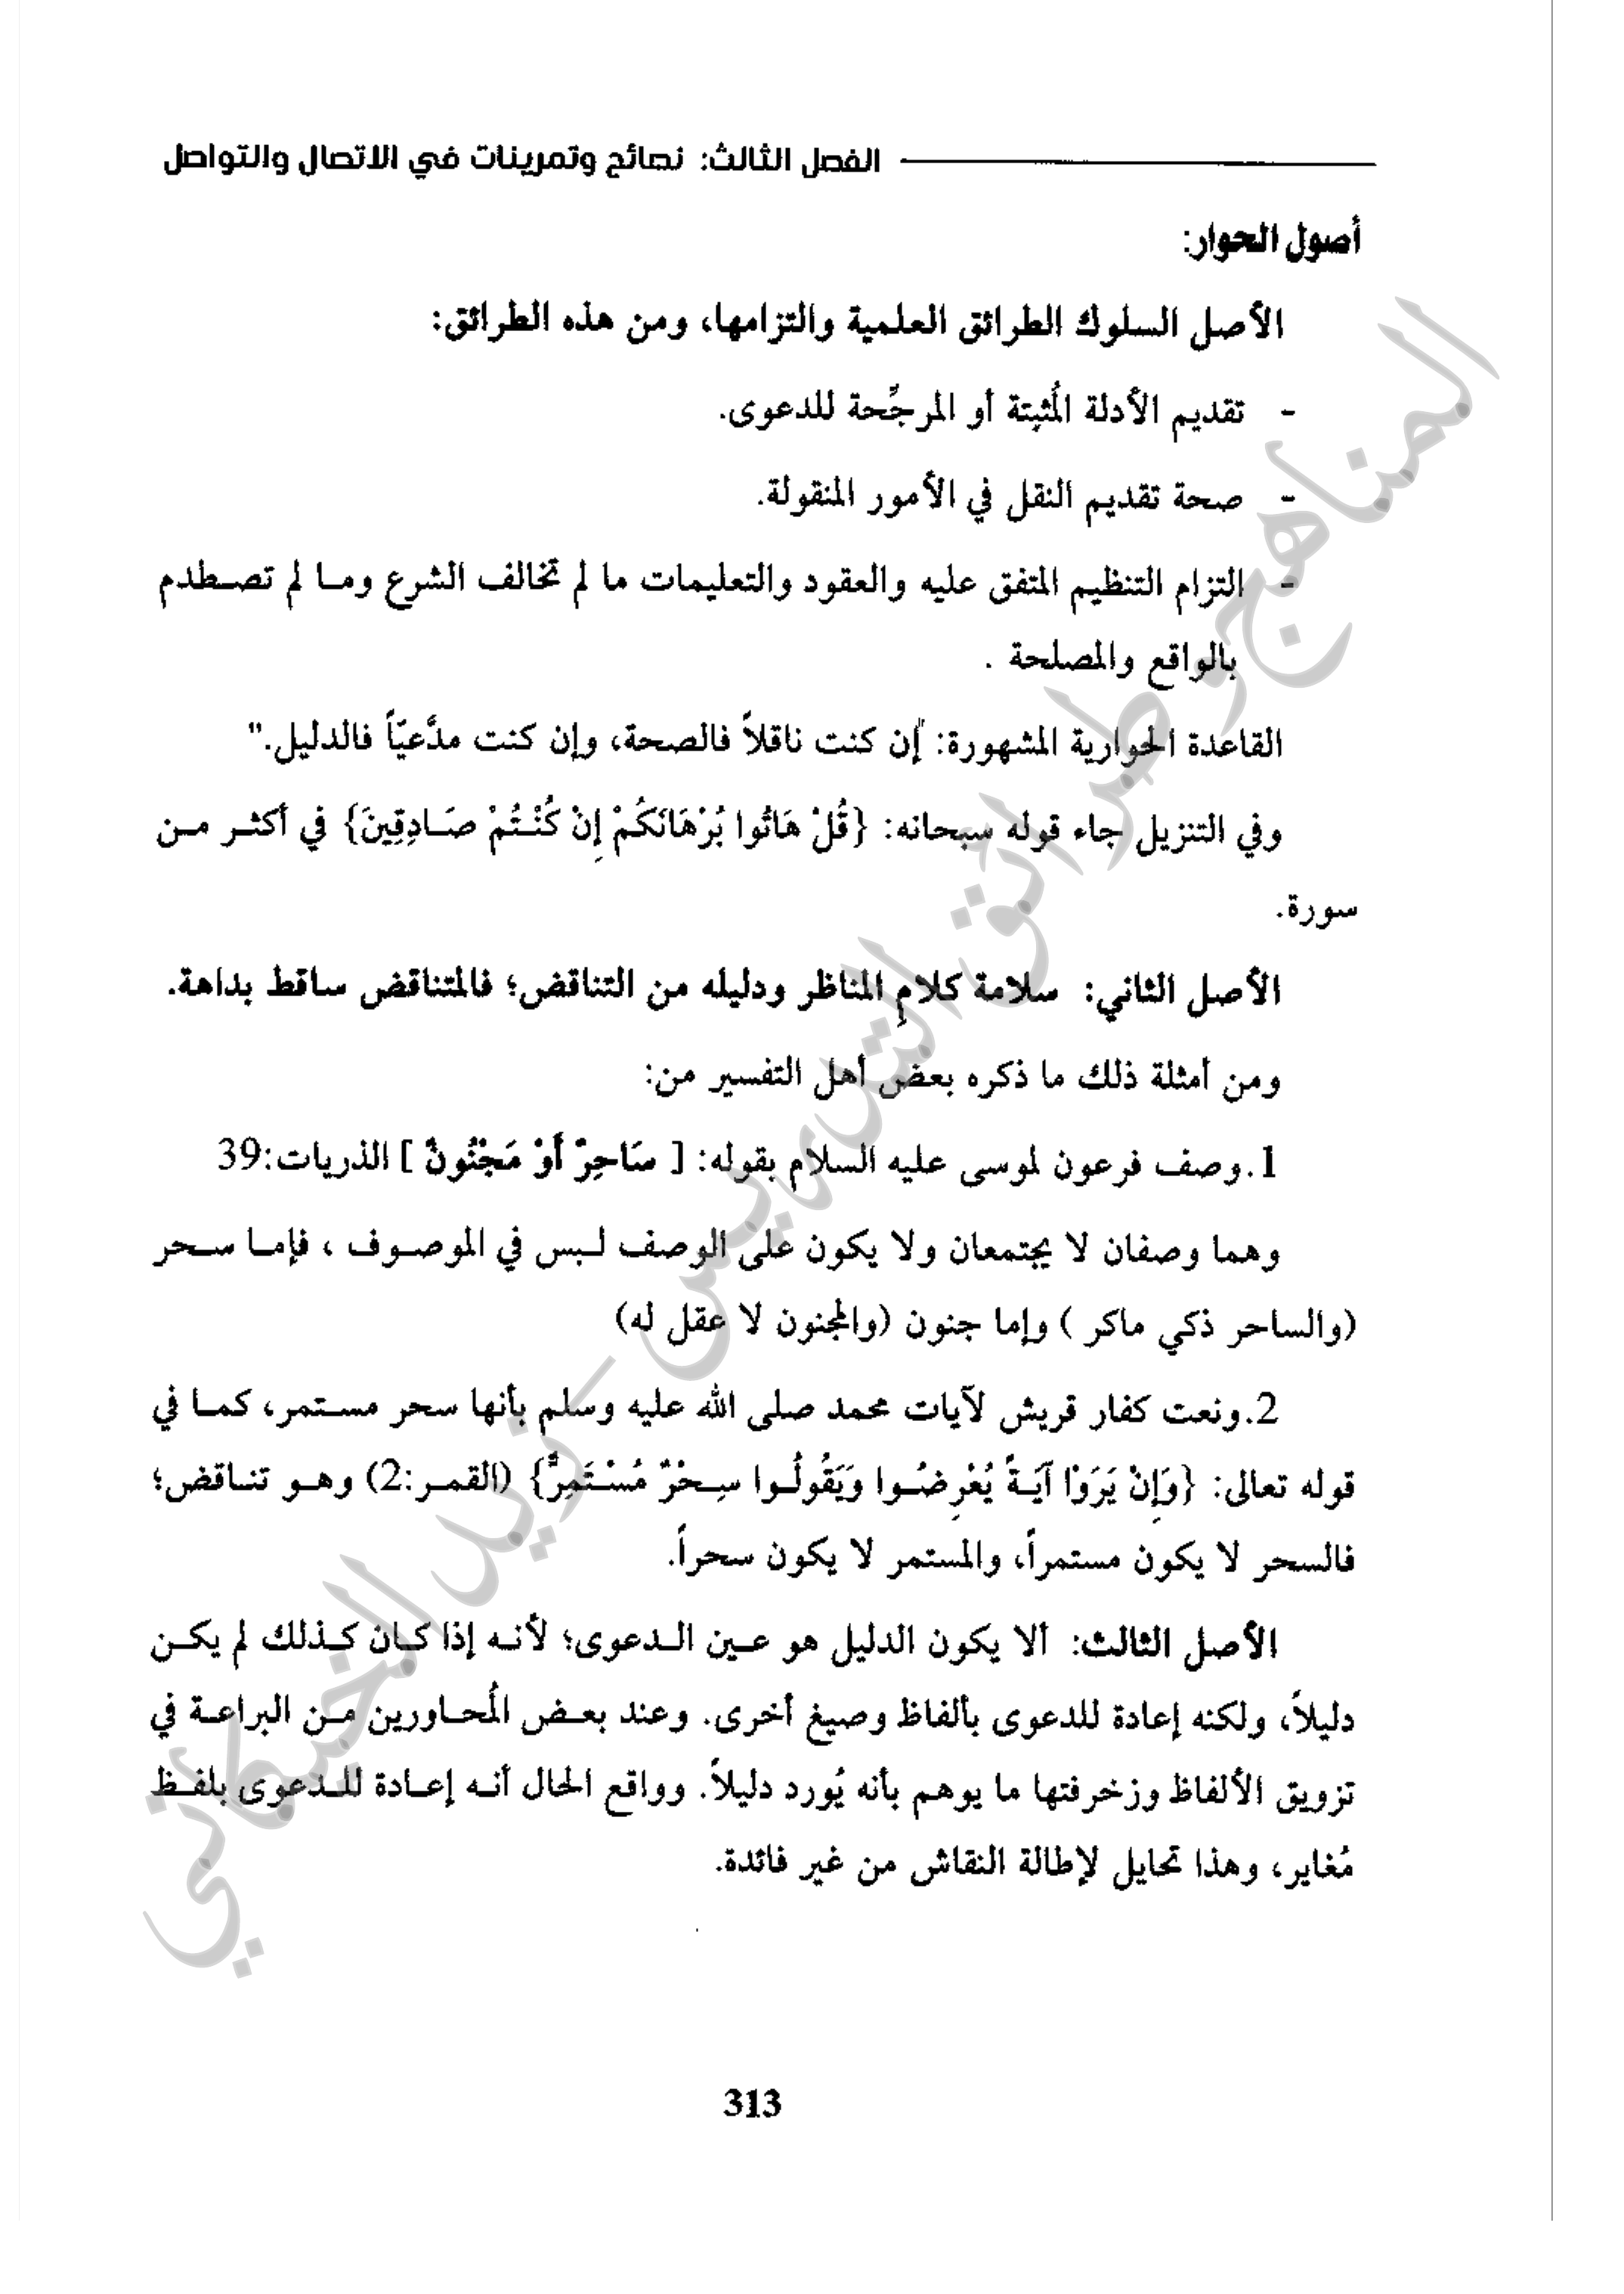 الفصل الثالث: نصائح وتمرينات في الاتصال والتواصل
أصول الحوار:
الأصل السلوك الطرائق العلمية والتزامها، ومن هذه الطرائق:
- تقديم الأدلة المُثبِتة أو المرجِّحة للدعوى.
- صحة تقديم النقل في الأمور المنقولة.
- التزام التنظيم المتفق عليه والعقود والتعليمات ما لم تخالف الشرع وما لم تصطدم
بالواقع والمصلحة .
القاعدة الحوارية المشهورة: "إن كنت ناقلاً فالصحة، وإن كنت مدَّعيّاً فالدليل."
وفي التنزيل جاء قوله سبحانه: {قُلْ هَاتُوا بُرْهَانَكُمْ إِنْ كُنْتُمْ صَادِقِينَ} في أكثر من
سورة.
الأصل الثاني: سلامة كلامِ المناظر ودليله من التناقض؛ فالمتناقض ساقط بداهة.
ومن أمثلة ذلك ما ذكره بعض أهل التفسير من:
1.وصف فرعون لموسى عليه السلام بقوله: [ سَاحِرٌ أَوْ مَجْنُونٌ ] الذريات:39
وهما وصفان لا يجتمعان ولا يكون على الوصف لبس في الموصوف ، فإما سحر
(والساحر ذكي ماكر ) وإما جنون (والمجنون لا عقل له)
2.ونعت كفار قريش لآيات محمد صلى الله عليه وسلم بأنها سحر مستمر، كما في
قوله تعالى: {وَإِنْ يَرَوْا آيَةً يُعْرِضُوا وَيَقُولُوا سِحْرٌ مُسْتَمِرٌّ} (القمر:2) وهو تناقض؛
فالسحر لا يكون مستمراً، والمستمر لا يكون سحراً.
الأصل الثالث: ألا يكون الدليل هو عين الدعوى؛ لأنه إذا كان كذلك لم يكن
دليلاً، ولكنه إعادة للدعوى بألفاظ وصيغ أخرى. وعند بعض المُحاورين من البراعة في
تزويق الألفاظ وزخرفتها ما يوهم بأنه يُورد دليلاً. وواقع الحال أنه إعادة للدعوى بلفظ
مُغاير، وهذا تحايل لإطالة النقاش من غير فائدة.
313
المناهج وطرائق التدريس - زيد الخيكاني